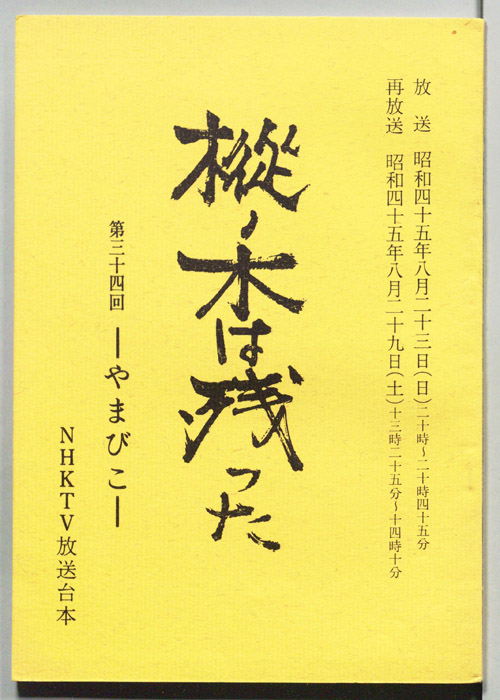 放送 昭和四十五年八月二十三日(日)二十時~二十時四十五分
再放送 昭和四十五年八月二十九日(土)十三時二十五分~十四時十分
樅ノ木は残った
第三十四回 ーやまびこー
NHKTV放送台本